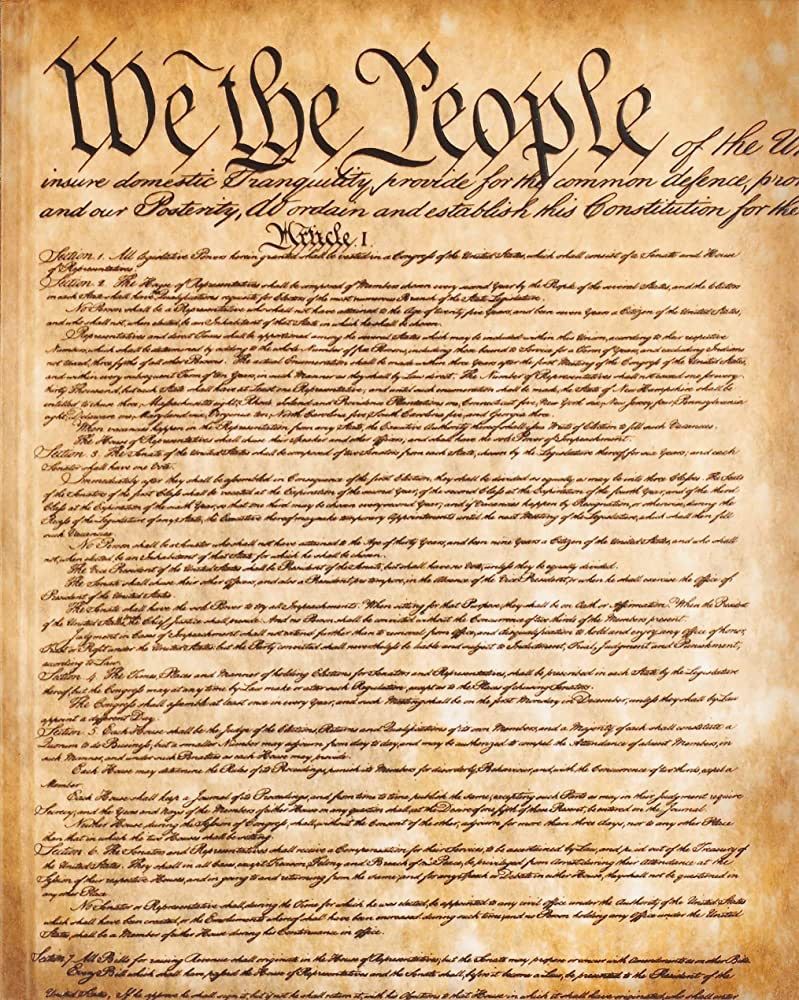 We the People of the U
insure domestic Tranquility, provide for the common defence, pro
and our Posterity, do ordain and establish this Constitution for the
Article. I.
Section. 1. All legislative Powers herein granted shall be vested in a Congreſs of the United States, which shall consist of a Senate and House
of Representatives.
Section. 2. The House of Representatives shall be composed of Members chosen every second Year by the People of the several States, and the Electors
in each State shall have the Qualifications requisite for Electors of the most numerous Branch of the State Legislature.
No Person shall be a Representative who shall not have attained to the Age of twenty five Years, and been seven Years a Citizen of the United States,
and who shall not, when elected, be an Inhabitant of that State in which he shall be chosen.
Representatives and direct Taxes shall be apportioned among the several States which may be included within this Union, according to their respective
Numbers, which shall be determined by adding to the whole Number of free Persons, including those bound to Service for a Term of Years, and excluding Indians
not taxed, three fifths of all other Persons. The actual Enumeration shall be made within three Years after the first Meeting of the Congreſs of the United States,
and within every subsequent Term of ten Years, in such Manner as they shall by Law direct. The Number of Representatives shall not exceed one for every
thirty Thousand, but each State shall have at Least one Representative; and until such enumeration shall be made, the State of New Hampshire shall be
entitled to chuse three, Maſsachusetts eight, Rhode Island and Providence Plantations one, Connecticut five, New York six, New Jersey four, Pennsylvania
eight, Delaware one, Maryland six, Virginia ten, North Carolina five, South Carolina five, and Georgia three.
When vacancies happen in the Representation from any State, the Executive Authority thereof shall issue Writs of Election to fill such Vacancies.
The House of Representatives shall chuse their Speaker and other Officers; and shall have the sole Power of Impeachment.
Section. 3. The Senate of the United States shall be composed of two Senators from each State, chosen by the Legislature thereof, for six Years; and each
Senator shall have one Vote.
Immediately after they shall be aſsembled in Consequence of the first Election, they shall be divided as equally as may be into three Claſses. The Seats
of the Senators of the first Claſs shall be vacated at the Expiration of the second Year, of the second Claſs at the Expiration of the fourth Year, and of the third
Claſs at the Expiration of the sixth Year, so that one third may be chosen every second Year; and if Vacancies happen by Resignation, or otherwise, during the
Receſs of the Legislature of any State, the Executive thereof may make temporary Appointments until the next Meeting of the Legislature, which shall then fill
such Vacancies.
No Person shall be a Senator who shall not have attained to the Age of thirty Years, and been nine Years a Citizen of the United States, and who shall
not, when elected, be an Inhabitant of that State for which he shall be chosen.
The Vice President of the United States shall be President of the Senate, but shall have no Vote, unleſs they be equally divided.
The Senate shall chuse their other Officers, and also a President pro tempore, in the Absence of the Vice President, or when he shall exercise the Office of
President of the United States.
The Senate shall have the sole Power to try all Impeachments. When sitting for that Purpose, they shall be on Oath or Affirmation. When the President
of the United States is tried, the Chief Justice shall preside: And no Person shall be convicted without the Concurrence of two thirds of the Members present.
Judgment in Cases of Impeachment shall not extend further than to removal from Office, and disqualification to hold and enjoy any Office of honor,
Trust or Profit under the United States: but the Party convicted shall nevertheleſs be liable and subject to Indictment, Trial, Judgment and Punishment,
according to Law.
Section. 4. The Times, Places and Manner of holding Elections for Senators and Representatives, shall be prescribed in each State by the Legislature
thereof; but the Congreſs may at any time by Law make or alter such Regulations, except as to the Places of chusing Senators.
The Congreſs shall aſsemble at least once in every Year, and such Meeting shall be on the first Monday in December, unleſs they shall by Law
appoint a different Day.
Section. 5. Each House shall be the Judge of the Elections, Returns and Qualifications of its own Members, and a Majority of each shall constitute a
Quorum to do Busineſs; but a smaller Number may adjourn from day to day, and may be authorized to compel the Attendance of absent Members, in
such Manner, and under such Penalties as each House may provide.
Each House may determine the Rules of its Proceedings, punish its Members for disorderly Behaviour, and, with the Concurrence of two thirds, expel a
Member.
Each House shall keep a Journal of its Proceedings, and from time to time publish the same, excepting such Parts as may in their Judgment require
Secrecy; and the Yeas and Nays of the Members of either House on any question shall, at the Desire of one fifth of those Present, be entered on the Journal.
Neither House, during the Seſsion of Congreſs, shall, without the Consent of the other, adjourn for more than three days, nor to any other Place
than that in which the two Houses shall be sitting.
Section. 6. The Senators and Representatives shall receive a Compensation for their Services, to be ascertained by Law, and paid out of the Treasury of
the United States. They shall in all Cases, except Treason, Felony and Breach of the Peace, be privileged from Arrest during their Attendance at the
Seſsion of their respective Houses, and in going to and returning from the same; and for any Speech or Debate in either House, they shall not be questioned in
any other Place.
No Senator or Representative shall, during the Time for which he was elected, be appointed to any civil Office under the Authority of the United States
which shall have been created, or the Emoluments whereof shall have been encreased during such time; and no Person holding any Office under the United
States, shall be a Member of either House during his Continuance in Office.
Section. 7. All Bills for raising Revenue shall originate in the House of Representatives; but the Senate may propose or concur with Amendments as on other Bills.
Every Bill which shall have paſsed the House of Representatives and the Senate, shall, before it become a Law, be presented to the President of the
United States; If he approve he shall sign it, but if not he shall return it, with his Objections to that House in which it shall have originated, who shall enter